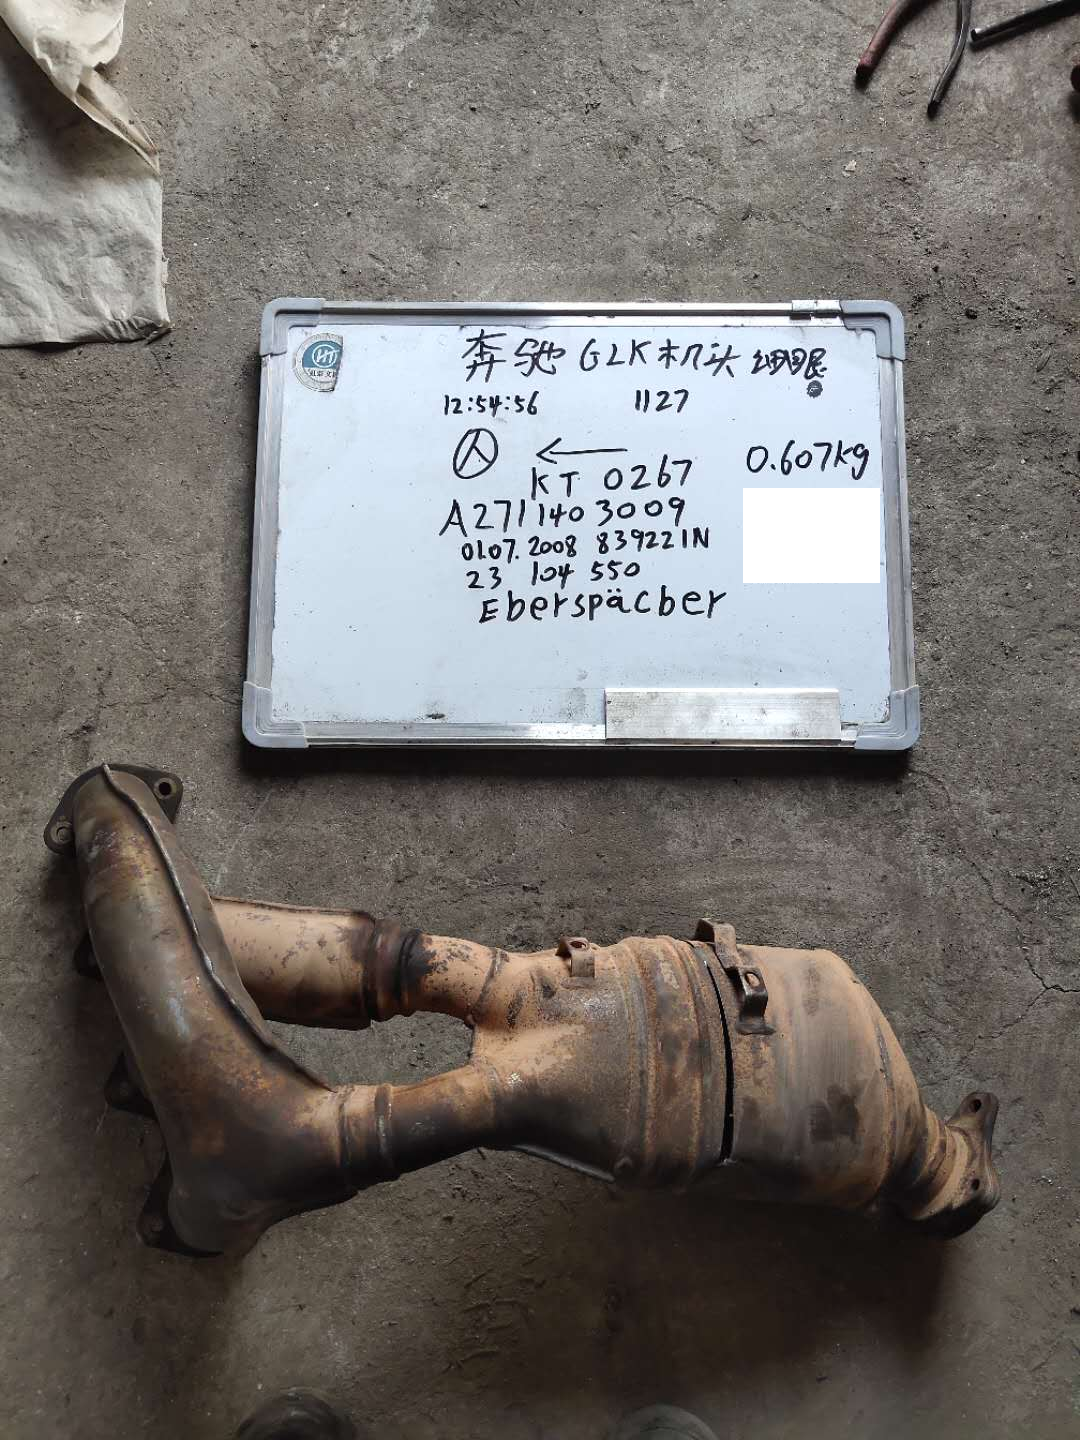 奔驰 GLK机头 细眼
12:54:56 1127
人 ← 0.607kg
KT 0267
A271 140 3009
01.07.2008 839221N
23 104 550
Eberspäcber
HT